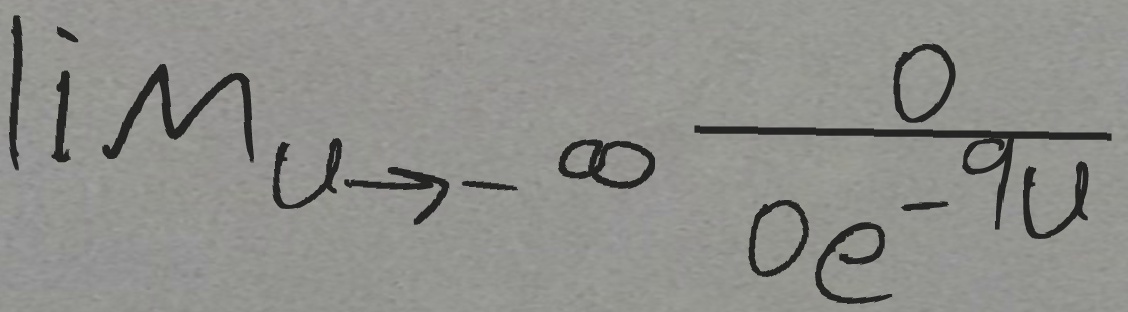 \lim_{u \to -\infty} \frac{0}{0e^{-9u}}